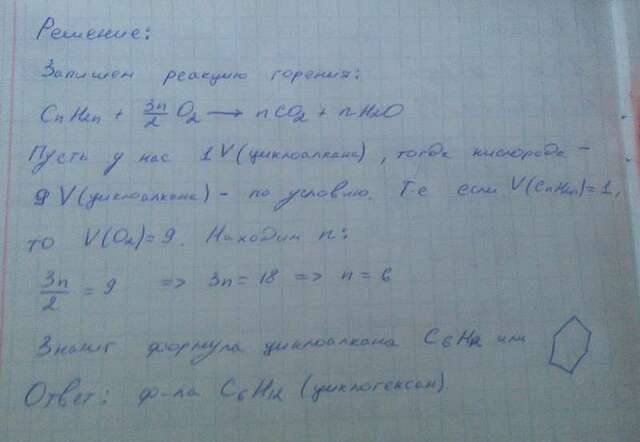 Решение:
Запишем реакцию горения:
CnH2n + 3n/2 O2 → nCO2 + nH2O
Пусть у нас 1 V (циклоалкана), тогда кислорода –
9 V (циклоалкана) – по условию. Т.е если V(CnH2n)=1,
то V(O2)=9. Находим n:
3n/2 = 9 => 3n = 18 => n = 6
Значит формула циклоалкана C6H12 или
Ответ: ф-ла C6H12 (циклогексан)